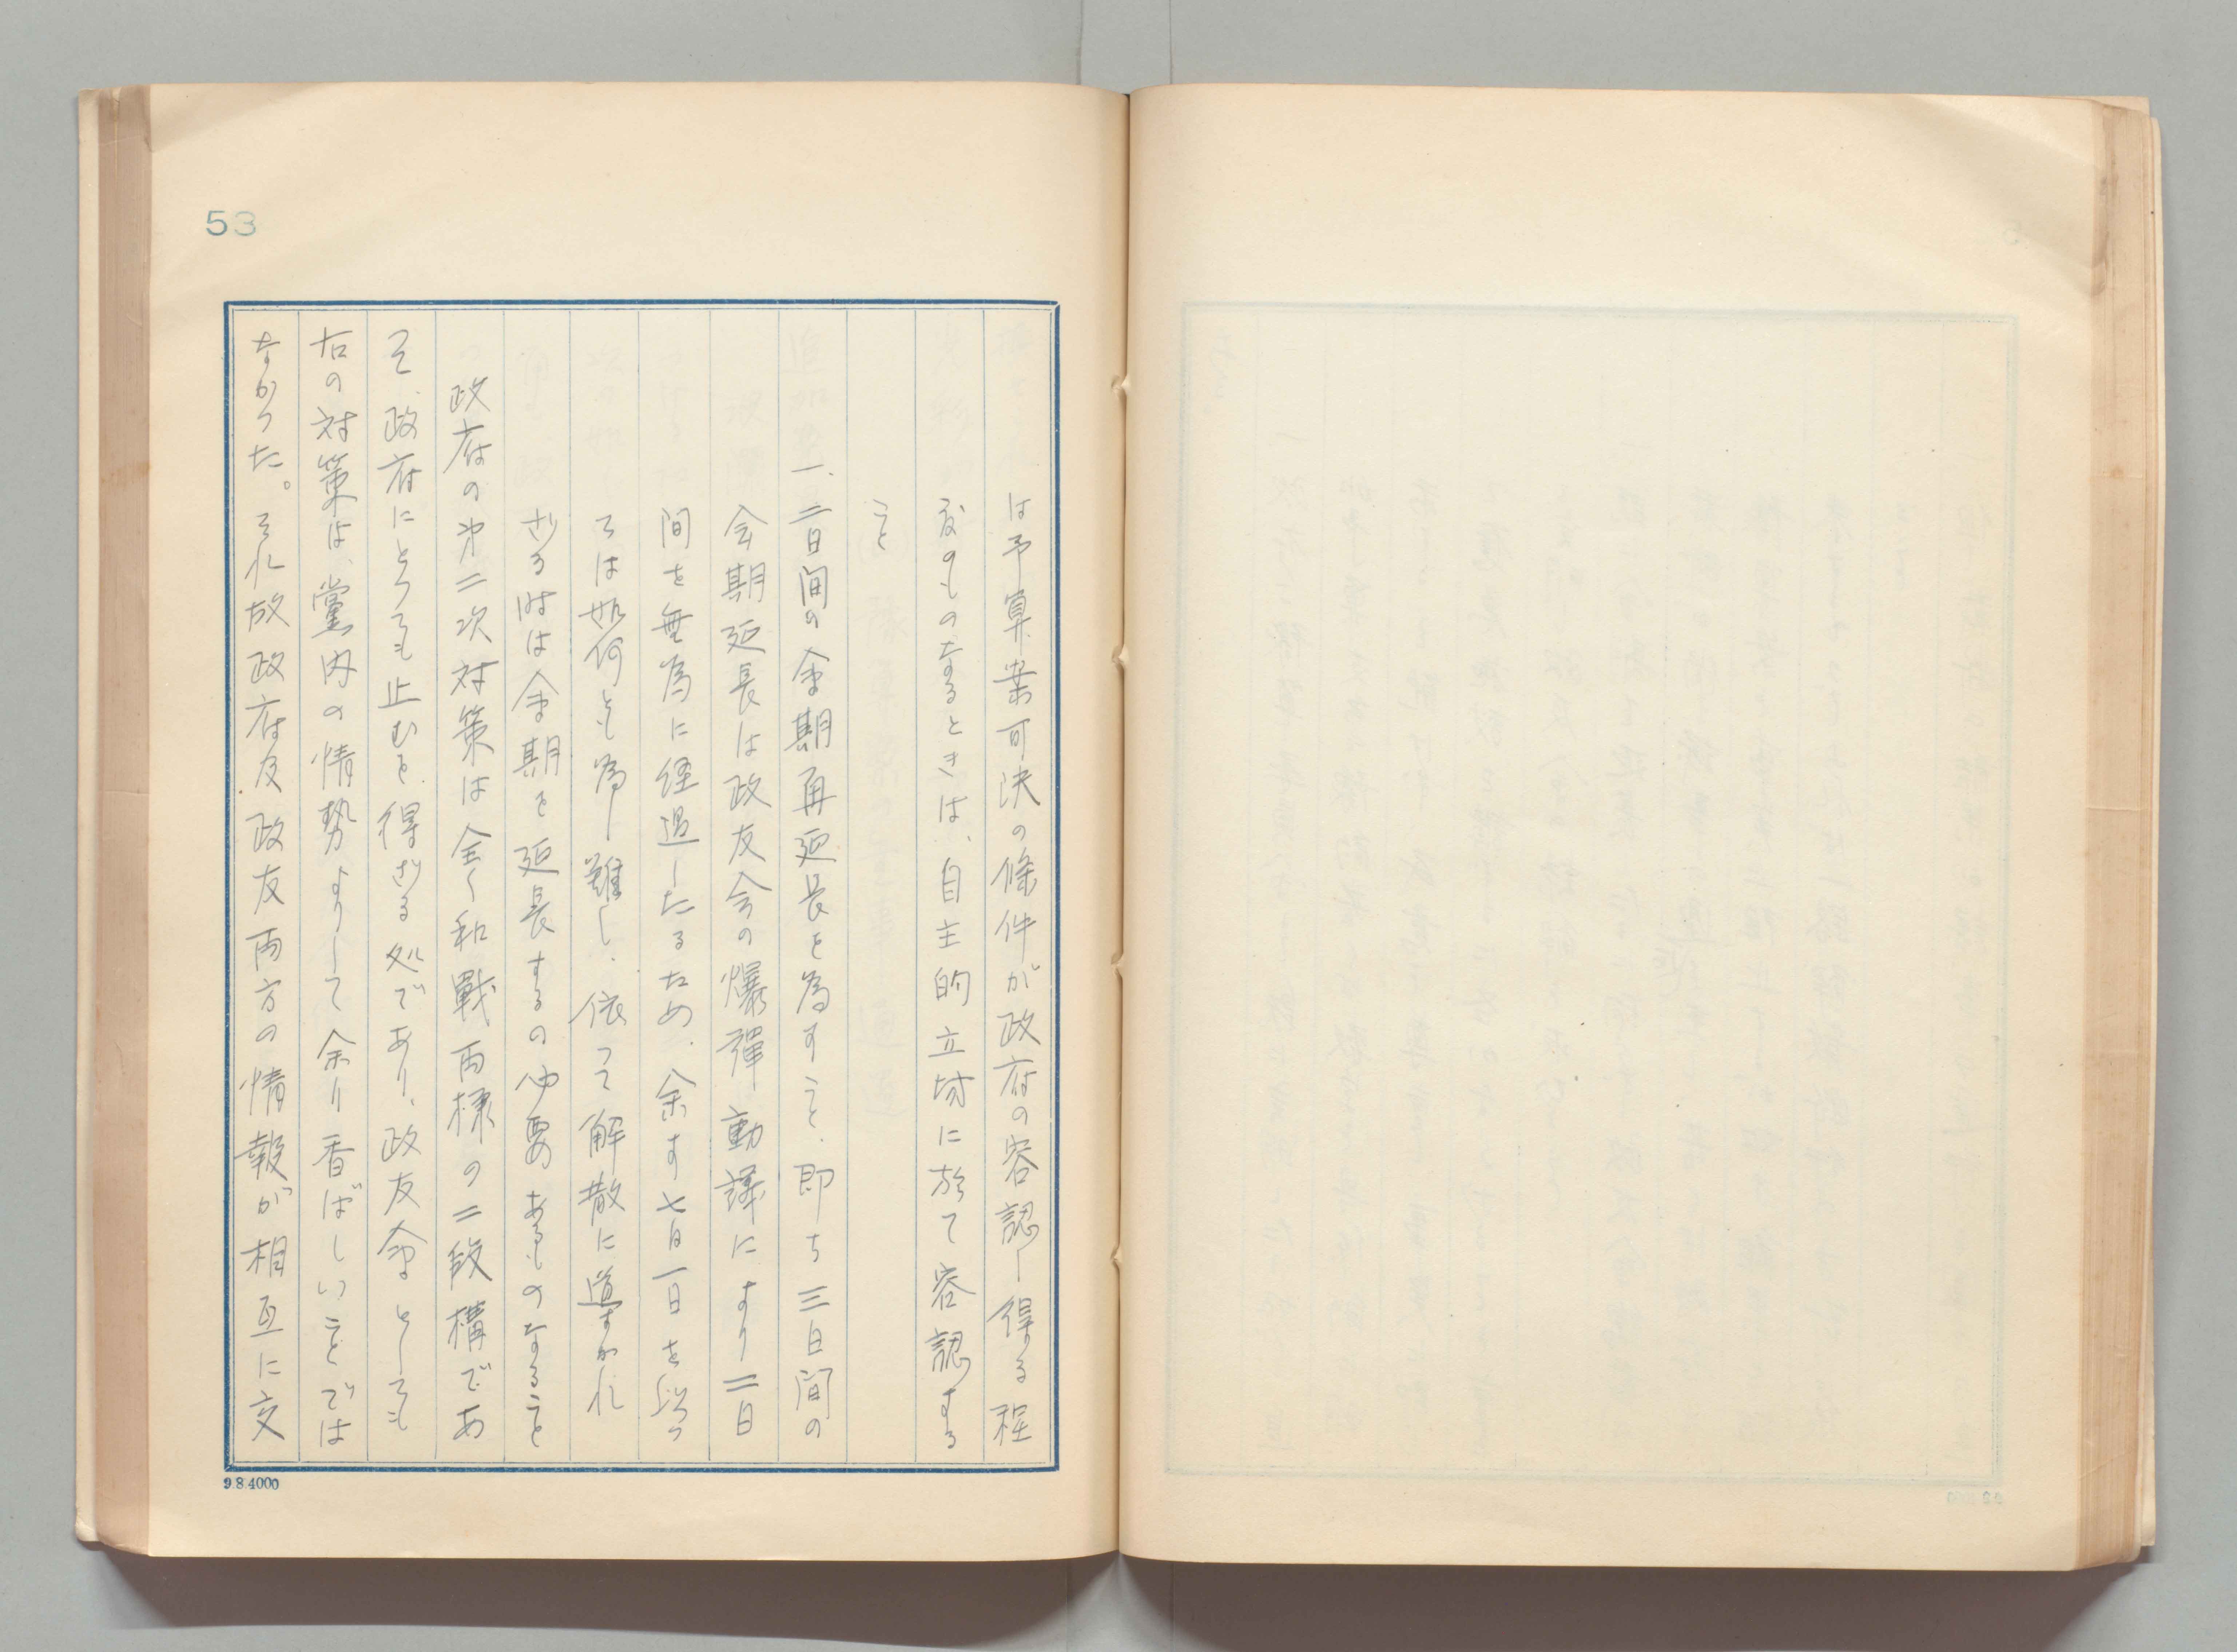 53
は予算案可決の條件が政府の容認し得る程
度のものなるときは、自主的立場に於て容認する
こと
一、二日間の会期再延長を為すこと、即ち三日間の
会期延長は政友会の爆弾動議により二日
間を無為に経過したるため、余す一日を以つ
ては如何とも為し難し、依つて解散に導かれ
ざる時は会期を延長するの必要あるものなること
政府の第二次対策は全く和戦両様の二段構であ
て、政府にとつても止むを得ざる処であり、政友会としても
右の対策は、黨内の情勢よりして余り香ばしいことでは
なかつた。それ故政府及政友両方の情報が相互に交
9.8.4000